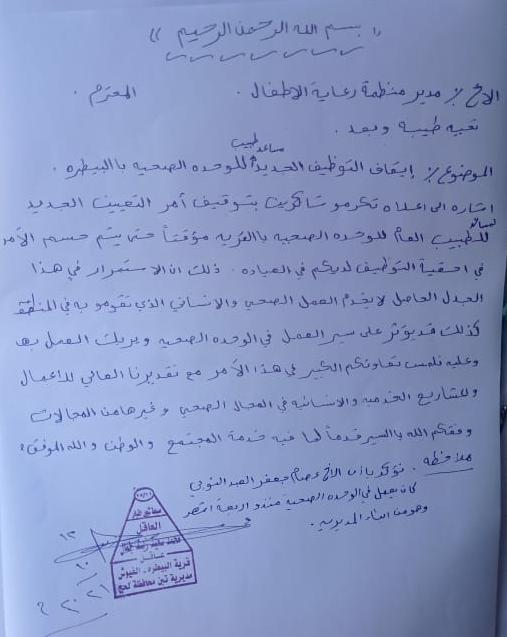 (( بسم الله الرحمن الرحيم ))
الاخ ٪ مدير منظمة رعاية الاطفال . المحترم .
تحيه طيبه وبعد .
الموضوع ٪ إيقاف التوظيف الجديد مساعد طبيب للوحده الصحيه باالبيطره .
اشاره الى اعلاه تكرمو شاكرين بتوقيف أمر التعيين الجديد
لمساعد الطبيب العام للوحده الصحيه باالقريه مؤقتاً حتى يتم حسم الأمر
في احقية التوظيف لديكم في العياده . ذلك ان الاستمرار في هذا
الجدل الحاصل لايخدم العمل الصحي والانساني الذي تقومو به في المنطقه
كذلك قد يؤثر على سير العمل في الوحده الصحيه ويربك العمل بها
وعليه نلمس تعاونكم الكبير في هذا الأمر مع تقديرنا العالي للاعمال
وللمشاريع الخدميه والانسانيه في المجال الصحي وغيرها من المجالات
وفقكم الله باالسير قدماً لما فيه خدمة المجتمع والوطن والله الموفق ؛
ملاحظه . نؤكد بأن الاخ عصام جعفر العبد النوبي
كان يعمل في الوحده الصحية منذو اربعة اشهر
وهو من ابناء المديريه .
العاقل
محمد سعيد
عاقل
قرية البيطره - الفيوش
مديرية تبن محافظة لحج
١٣
١٠
٢٠٢١ م